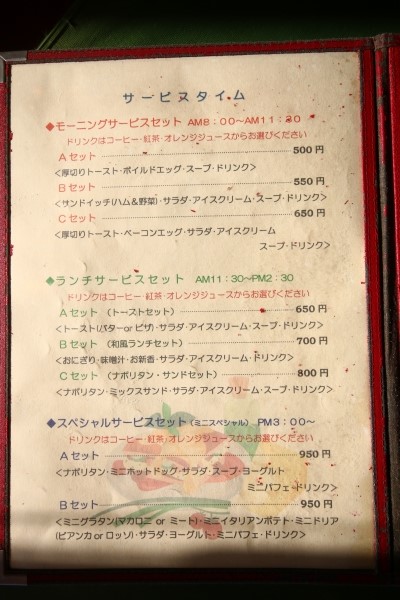 サービスタイム
◆モーニングサービスセット AM8：00～AM11：30
ドリンクはコーヒー・紅茶・オレンジジュースからお選びください
Aセット 500円
<厚切りトースト・ボイルドエッグ・スープ・ドリンク>
Bセット 550円
<サンドイッチ(ハム&野菜)・サラダ・アイスクリーム・スープ・ドリンク>
Cセット 650円
<厚切りトースト・ベーコンエッグ・サラダ・アイスクリーム
スープ・ドリンク>
◆ランチサービスセット AM11：30～PM2：30
ドリンクはコーヒー・紅茶・オレンジジュースからお選びください
Aセット （トーストセット） 650円
<トースト(バター or ピザ)・サラダ・アイスクリーム・スープ・ドリンク>
Bセット （和風ランチセット） 700円
<おにぎり・味噌汁・お新香・サラダ・アイスクリーム・ドリンク>
Cセット （ナポリタン・サンドセット） 800円
<ナポリタン・ミックスサンド・サラダ・アイスクリーム・スープ・ドリンク>
◆スペシャルサービスセット（ミニスペシャル） PM3：00～
ドリンクはコーヒー・紅茶・オレンジジュースからお選びください
Aセット 950円
<ナポリタン・ミニホットドッグ・サラダ・スープ・ヨーグルト
ミニパフェ・ドリンク>
Bセット 950円
<ミニグラタン(マカロニ or ミート)・ミニイタリアンポテト・ミニドリア
(ビアンカ or ロッソ)・サラダ・ヨーグルト・ミニパフェ・ドリンク>